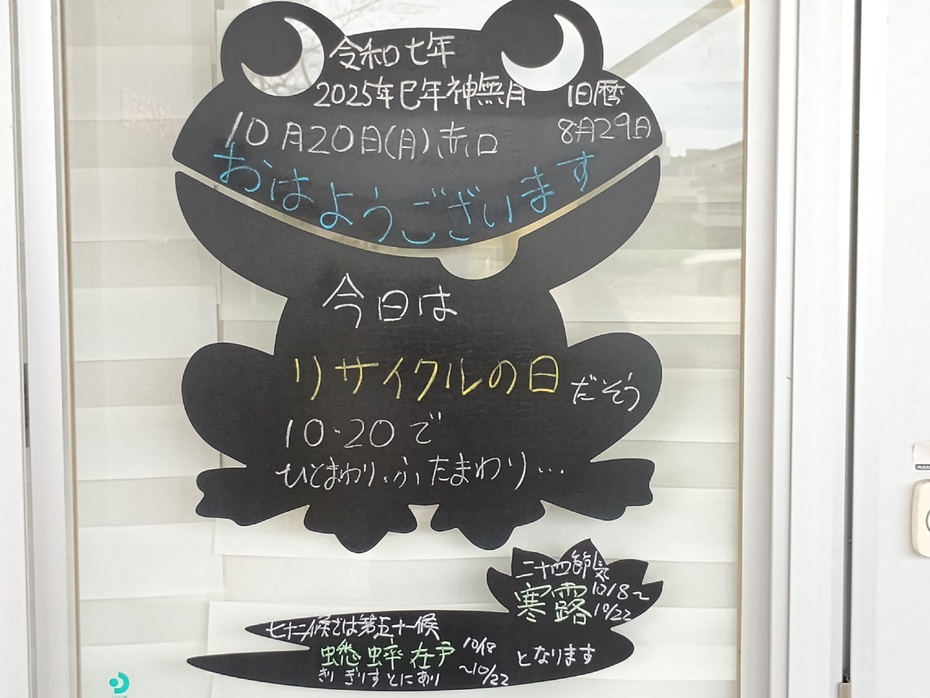 令和七年
2025年巳年神無月 旧暦
10月20日(月)赤口 8月29日
おはようございます
今日は
リサイクルの日だそう
10・20で
ひとまわり・ふたまわり…
二十四節気
寒露 10/8〜
10/22
七十二候では第五十一候
蟋蟀在戸 10/18
〜10/22 となります
きりぎりすとにあり